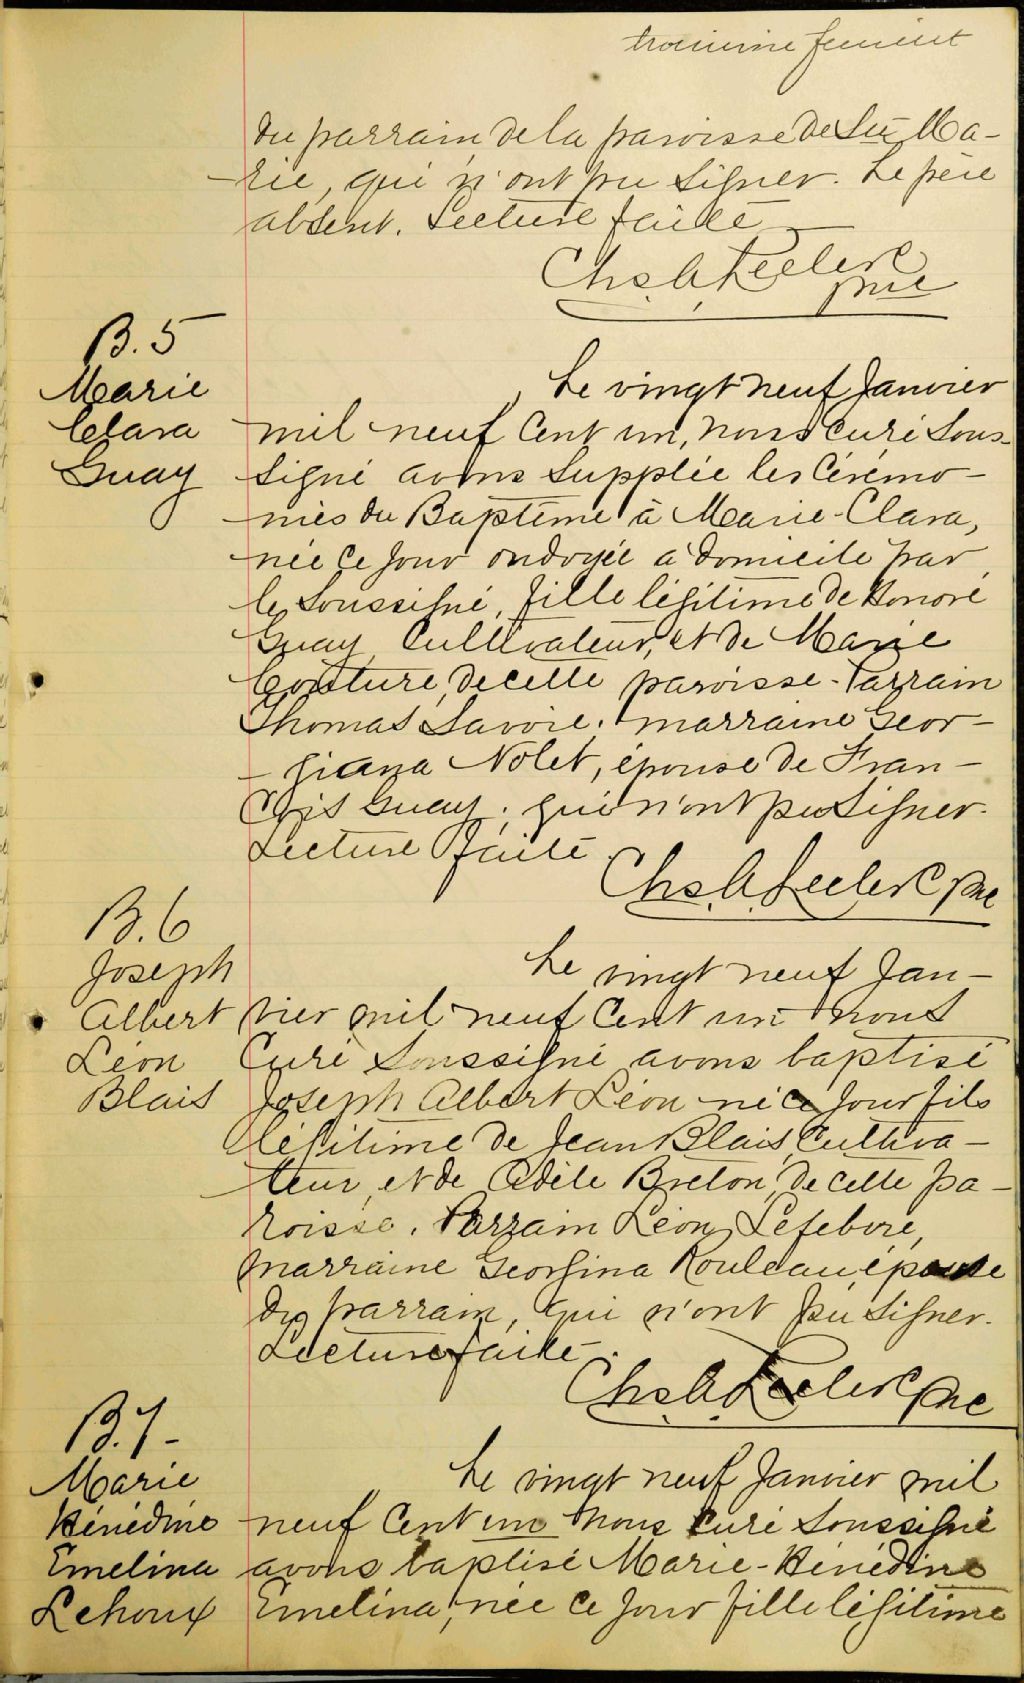 troisième feuillet
du parrain, de la paroisse de Ste Ma-
-rie, qui n'ont pu signer. Le père
absent. Lecture faite
Chs. A. Leclerc
ptre
B. 5
Marie
Clara
Guay
Le vingt neuf Janvier
mil neuf cent un, nous curé sous-
signé avons supplée les cérémo-
-nies du Baptême à Marie-Clara,
née ce jour ondoyée à domicile par
le soussigné, fille légitime de Honoré
Guay, cultivateur, et de Marie
Couture, de cette paroisse. Parrain
Thomas Savoie, marraine Geor-
-giana Nolet, épouse de Fran-
cois Guay, qui n'ont pu signer.
Lecture faite.
Chs. A. Leclerc ptre
B. 6
Joseph
Albert
Léon
Blais
Le vingt neuf Jan-
vier mil neuf cent un nous
curé soussigné avons baptisé
Joseph Albert Léon né ce jour fils
légitime de Jean Blais, cultiva-
teur, et de Adèle Breton, de cette pa-
roisse. Parrain Léon Lefebvre,
marraine Georgina Rouleau, épouse
du parrain, qui n'ont pu signer.
Lecture faite.
Chs. A. Leclerc ptre
B. 7-
Marie
Bénédine
Emelina
Lehoux
Le vingt neuf Janvier mil
neuf cent un nous curé soussigné
avons baptisé Marie-Bénédine
Emelina, née ce jour fille légitime